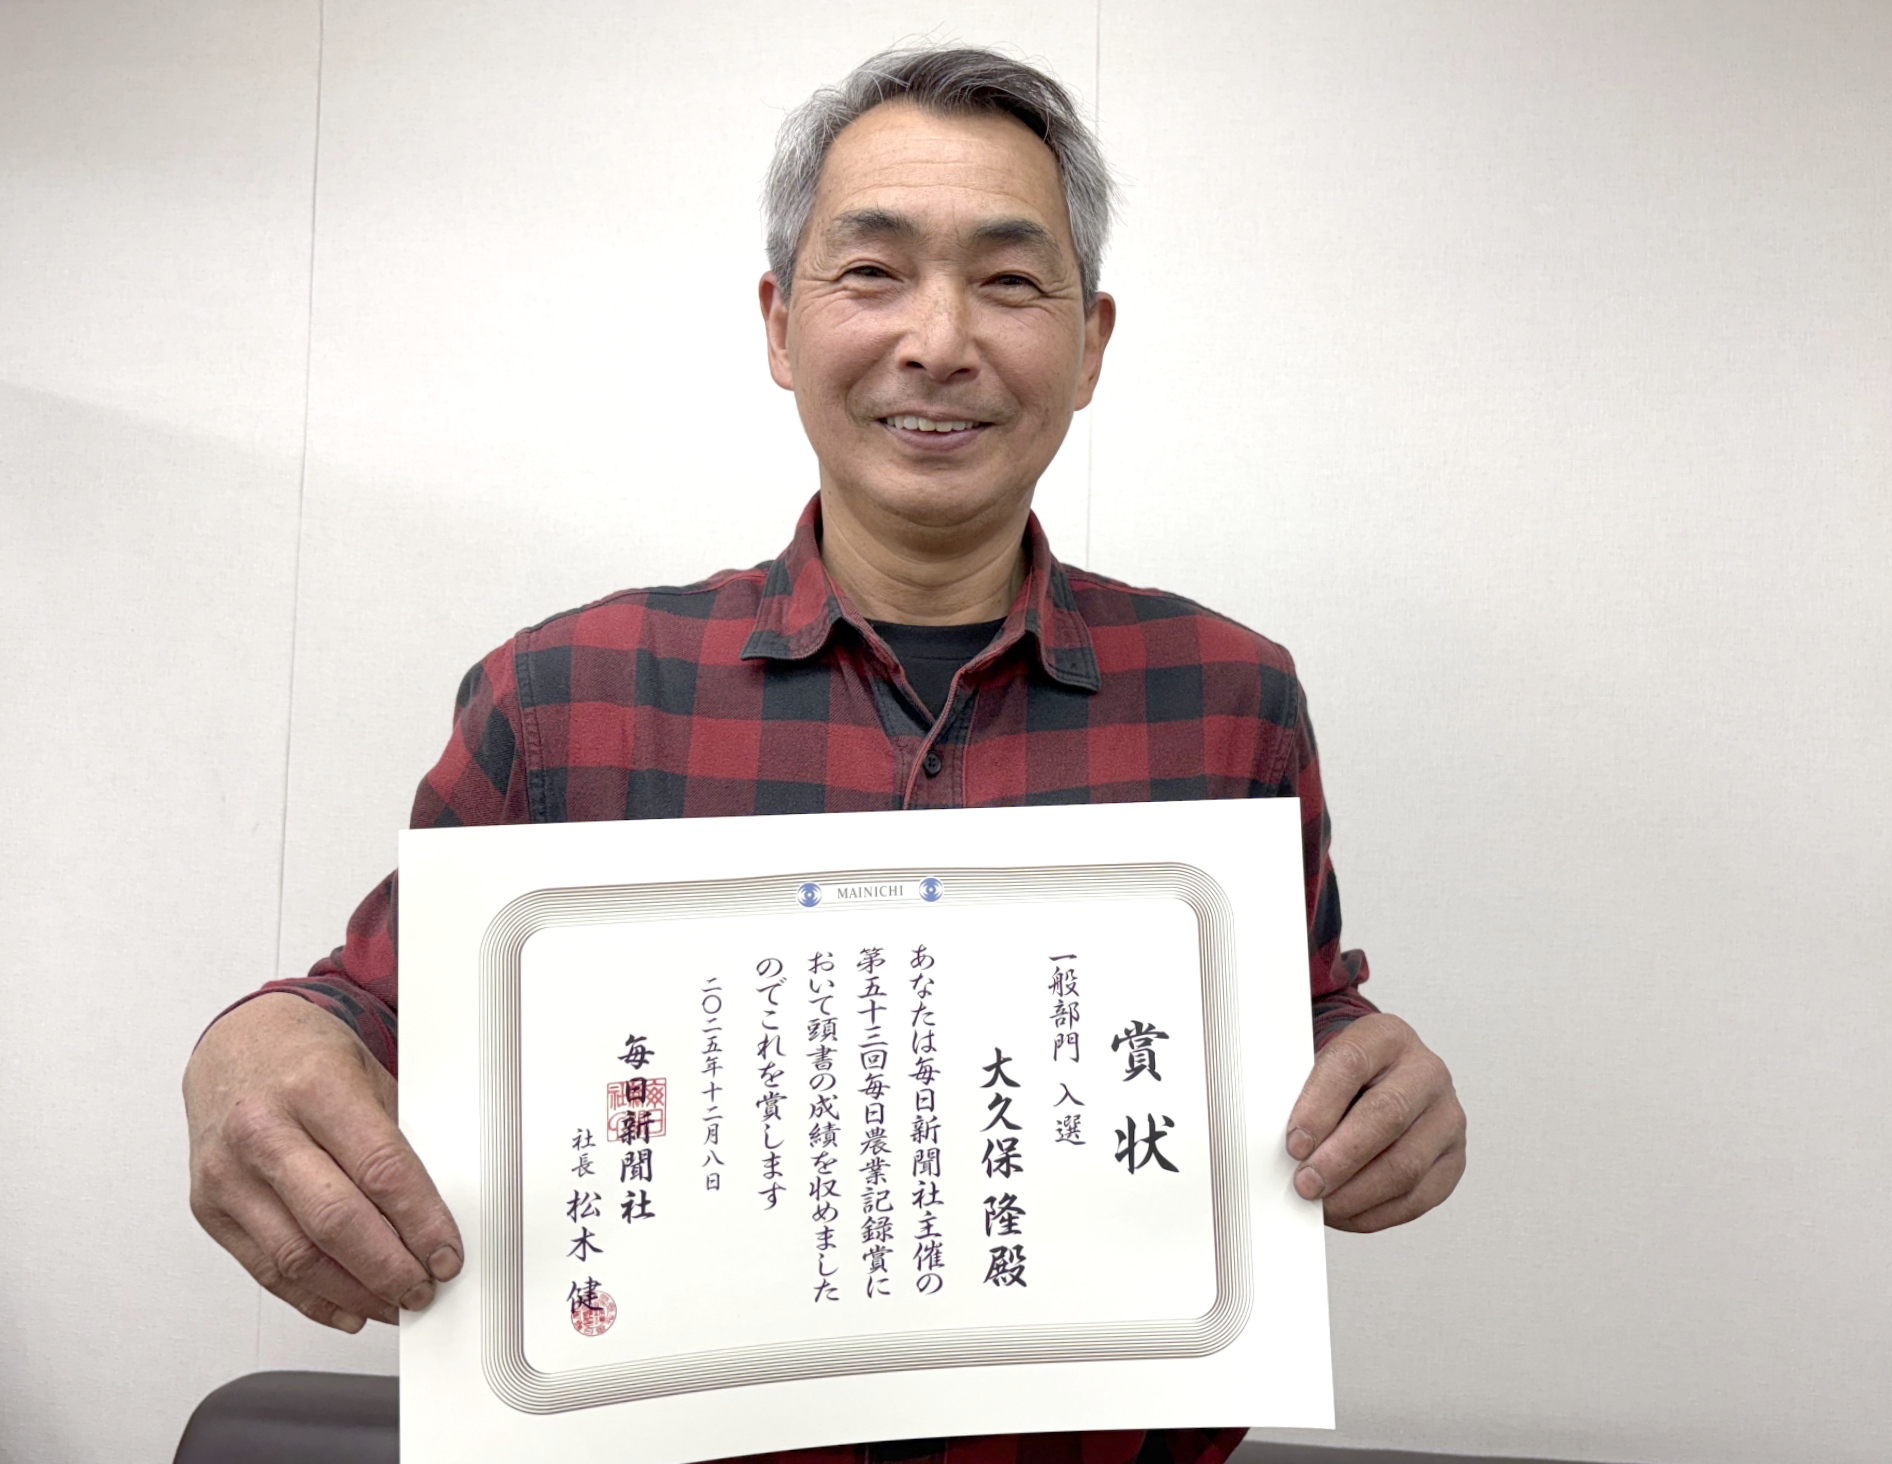 MAINICHI
賞状
一般部門 入選
大久保 隆殿
あなたは毎日新聞社主催の
第五十三回毎日農業記録賞に
おいて頭書の成績を収めました
のでこれを賞します
二〇二五年十二月八日
毎日新聞社
社長 松木 健